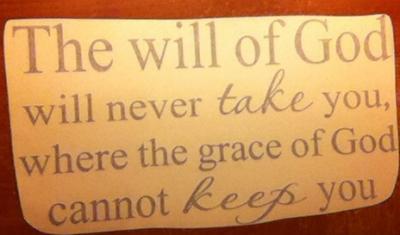 The will of God
will never take you,
where the grace of God
cannot keep you